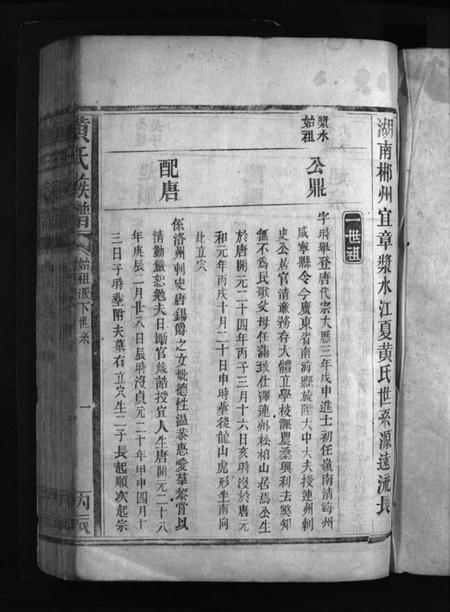 湖南郴州宜章漿水江夏黃氏世系源遠流長
一世祖
漿水始祖
公鼎
字時舉登唐代宗大曆三年戊申進士初任嶺南清海州
咸寧縣令今廣東省南海縣旋陞大中大夫授連州刺
史公居官清廉務存大體立學校課農桑興利去獘知
無不為民歌父母任滿致仕澤連州松柏山居焉公生
於唐開元二十四年丙子三月十六日亥時沒於唐元
和元年丙戌十月二十日申時葬後龍山虎形坐南向
北立穴
配唐
係洛州刺史唐錫爵之女媲德性溫恭惠愛羣黎嘗以
清勤嚴恕勉夫日勵官箴誥授宜人生唐開元二十八
年庚辰一月廿八日辰時沒貞元二十年甲申四月十
三日子時葬附夫墓右立穴生二子長起順次起宗
黃氏族譜
始祖派下世系
一